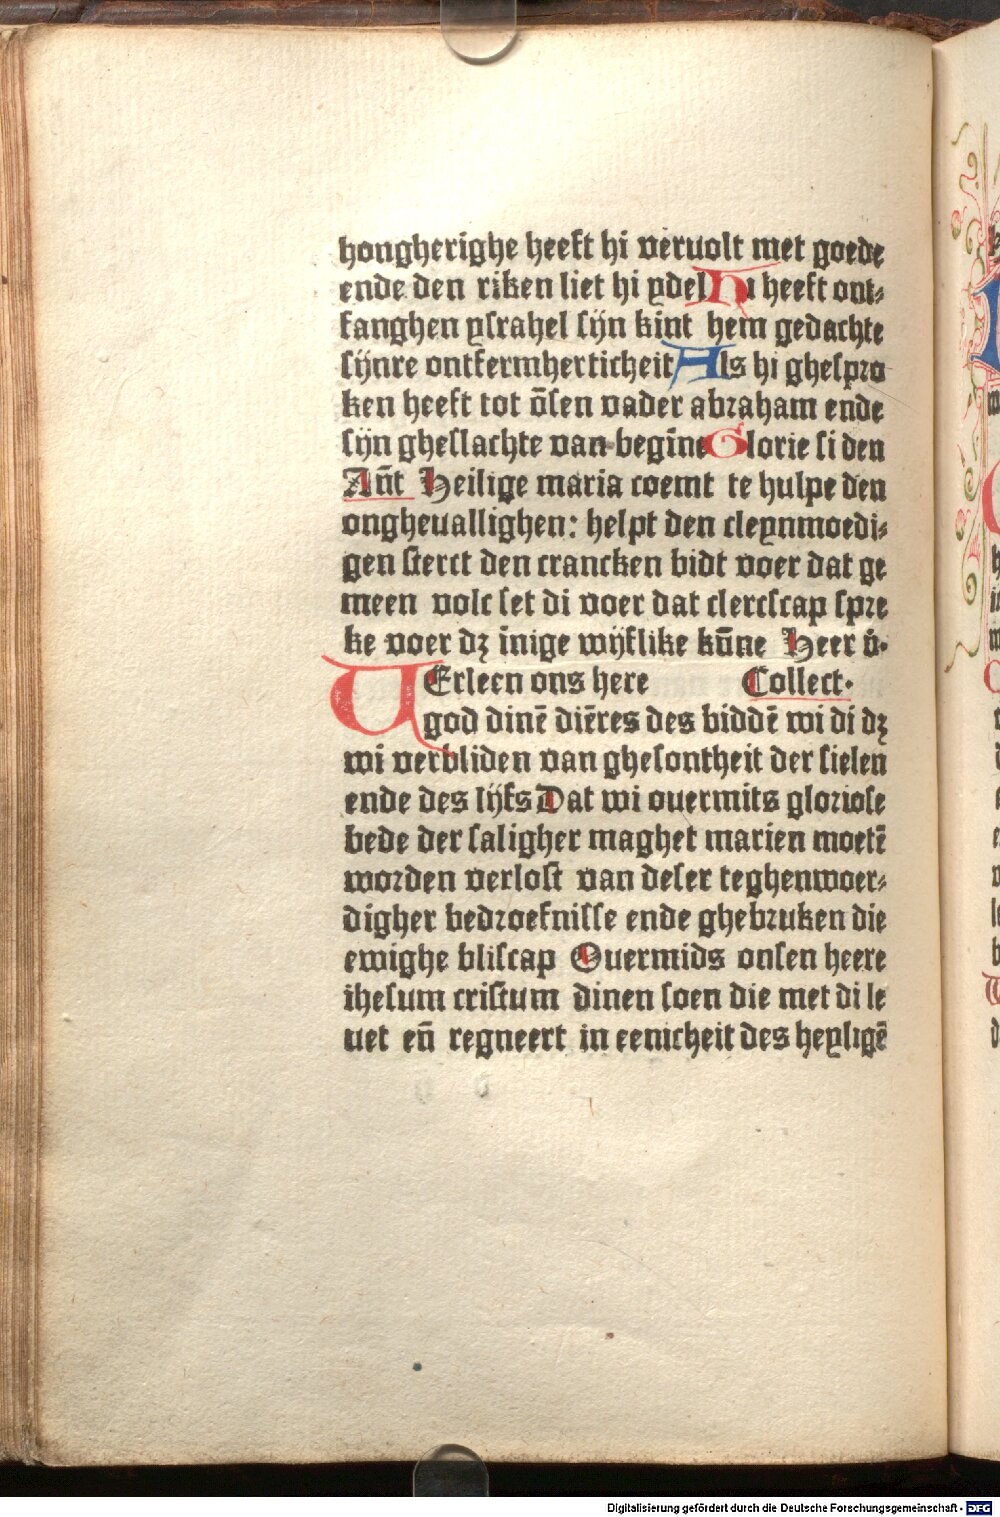 hongherighe heeft hi veruolt met goede
ende den riken liet hi ydel Hi heeft ont⸗
fanghen ysrahel sijn kint hem gedachte
sijnre ontfermherticheit Als hi ghespro
ken heeft tot ōsen vader abraham ende
sijn gheslachte van begīne Glorie si den
Añt Heilige maria coemt te hulpe den
ongheuallighen: helpt den cleynmoedi⸗
gen sterct den crancken bidt voer dat ge
meen volc set di voer dat clercscap spre
ke voer dꝫ īnige wijflike kūne Heer v̄.
VErleen ons here Collect.
god dinē diēres des biddē wi di dꝫ
wi verbliden van ghesontheit der sielen
ende des lijfs Dat wi ouermits gloriose
bede der saligher maghet marien moetē
worden verlost van deser teghenwoer⸗
digher bedroefnisse ende ghebruken die
ewighe bliscap Ouermids onsen heere
ihesum cristum dinen soen die met di le
uet eñ regneert in eenicheit des heyligē
Digitalisierung gefördert durch die Deutsche Forschungsgemeinschaft - DFG